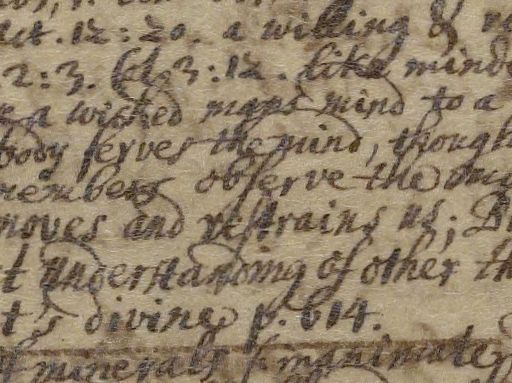 Act. 12:20. a willing &
2:3. Col. 3:12. like minde
a wicked mans mind to a
body serves the mind, though
members observe the
moves and restrains us; B
t understanding of other th
t's divine p. 614.
of minerals & manimate